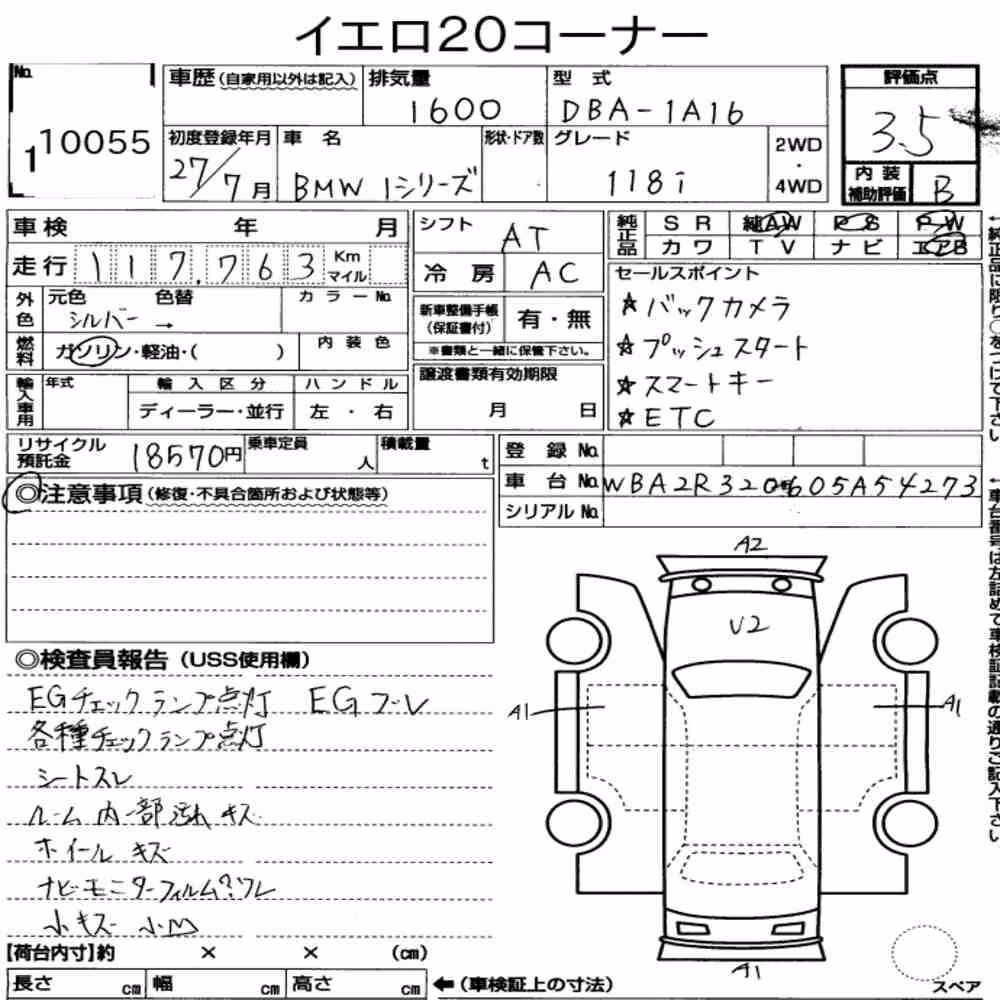 イエロ20コーナー
No. 1 10055
車歴 (自家用以外は記入) 排気量 1600 型式 DBA-1A16
初度登録年月 27/7月 車名 BMW 1シリーズ 形状・ドア数 グレード 118i 2WD・4WD
評価点 3.5
内装補助評価 B
車検 年 月
走行 117,763 Km マイル
外色 元色 シルバー → 色替 カラーNo.
燃料 ガソリン・軽油・( ) 内装色
輸入車用 年式 輸入区分 ディーラー・並行 ハンドル 左・右
シフト AT
冷房 AC
新車整備手帳(保証書付) 有・無
※書類と一緒に保管下さい。
譲渡書類有効期限 月 日
純正品 SR 純AW PS PW
カワ TV ナビ エアB
セールスポイント
☆バックカメラ
☆プッシュスタート
☆スマートキー
☆ETC
←純正品に限り○をつけて下さい
リサイクル預託金 18570円 乗車定員 人 積載量 t
登録No.
車台No. WBA2R320605A54273
シリアルNo.
←車台番号は左詰めで車検証記載の通りご記入下さい。
◎注意事項 (修復・不具合箇所および状態等)
◎検査員報告 (USS使用欄)
EGチェックランプ点灯 EGフレ
各種チェックランプ点灯
シートスレ
ルーム内一部汚れ キズ
ホイール キズ
ナビモニターフィルム?ワレ
小キズ 小凹
A2
V2
A1
A1
A1
【荷台内寸】約 × × (cm)
長さ cm 幅 cm 高さ cm ←(車検証上の寸法)
スペア